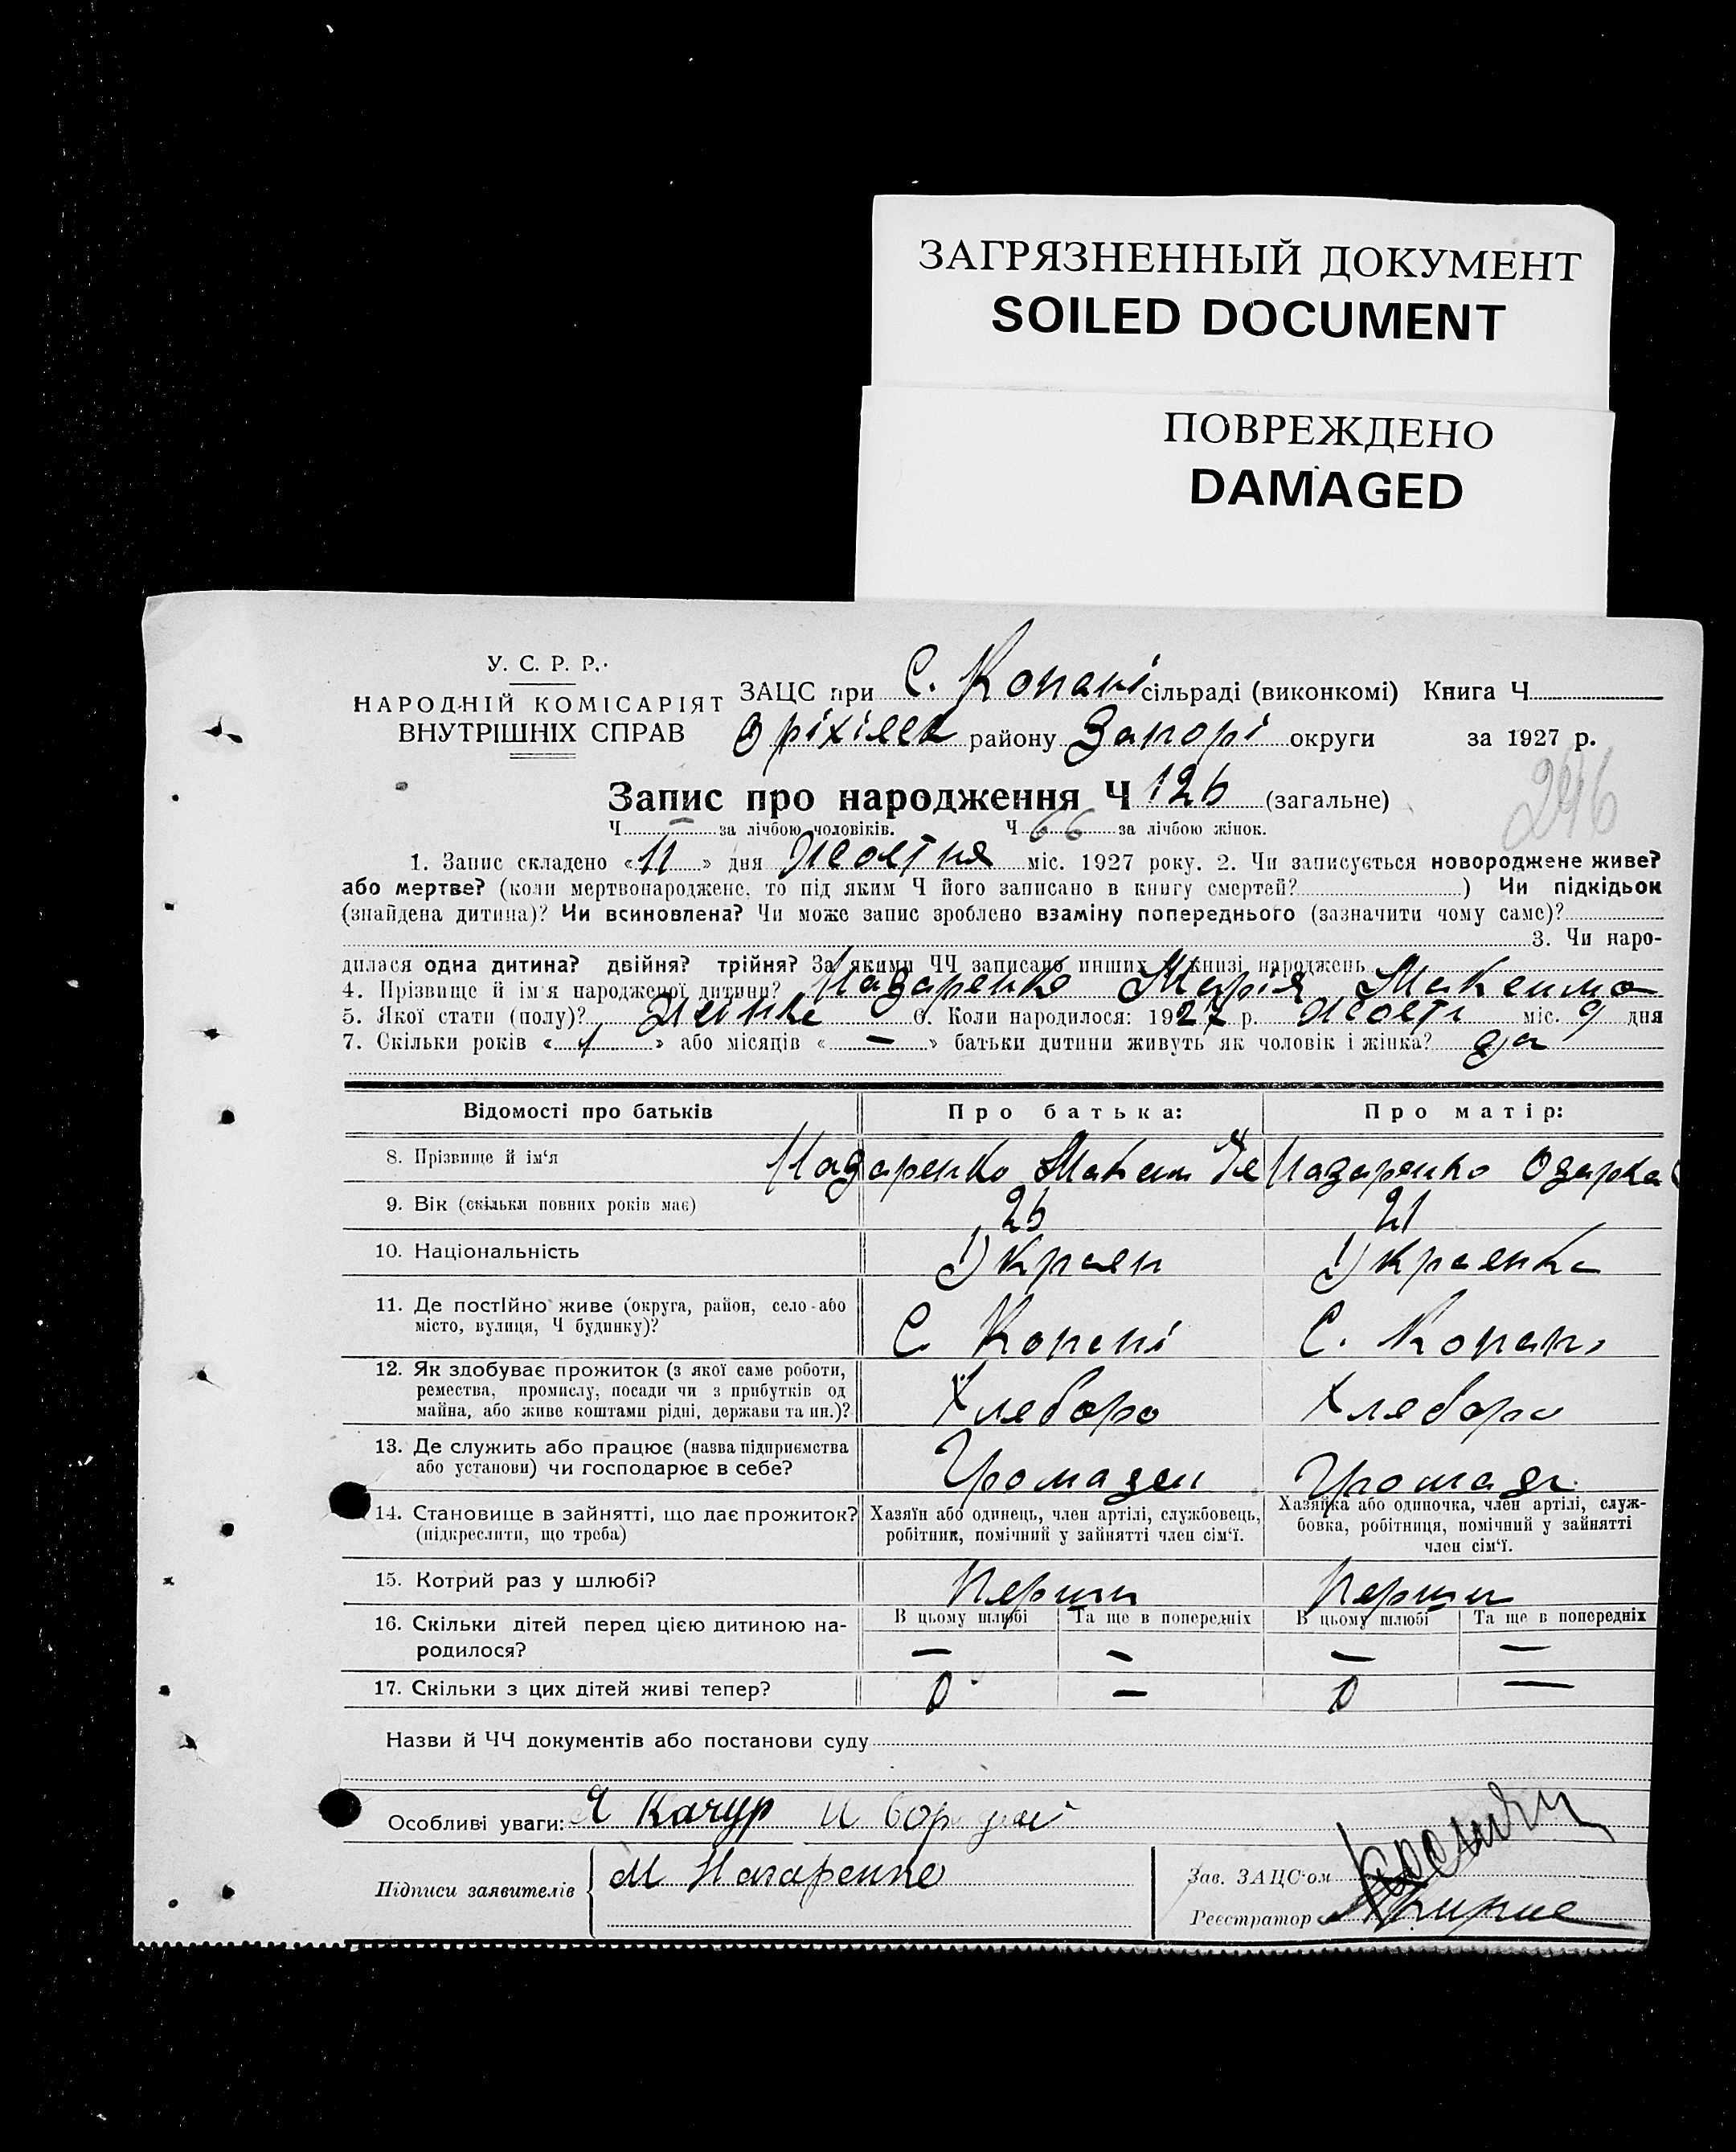 ЗАГРЯЗНЕННЫЙ ДОКУМЕНТ
SOILED DOCUMENT
ПОВРЕЖДЕНО
DAMAGED
У. С. Р. Р.
НАРОДНІЙ КОМІСАРІЯТ
ВНУТРІШНІХ СПРАВ
ЗАЦС при С. Копані сільраді (виконкомі) Книга Ч
району Запорі округи за 1927 р.
Запис про народження Ч 126 (загальне)
246
Ч — за лічбою чоловіків. Ч 66 за лічбою жінок.
1. Запис складено «11» дня Жолтня міс. 1927 року. 2. Чи записується новороджене живе?
або мертве? (коли мертвонароджене, то під яким Ч його записано в книгу смертей? ) Чи підкідьок
(знайдена дитина)? Чи всиновлена? Чи може запис зроблено взаміну попереднього (зазначити чому саме)?
3. Чи наро-
дилася одна дитина? двійня? трійня? За якими ЧЧ записано инших в книзі народжень
4. Прізвище й ім'я народженої дитини? Назаренко Марія Максимо
5. Якої стати (полу)? 6. Коли народилося: 1927 р. Жолт міс. 9 дня
7. Скільки років «1» або місяців «—» батьки дитини живуть як чоловік і жінка? да
Відомості про батьків Про батька: Про матір:
8. Прізвище й ім'я Назаренко Максим Назаренко Одарка
9. Вік (скільки повних років має) 26 21
10. Національність Украен Украенка
11. Де постійно живе (округа, район, село або
місто, вулиця, Ч будинку)? С Копані С. Копані
12. Як здобуває прожиток (з якої саме роботи,
ремества, промислу, посади чи з прибутків од
майна, або живе коштами рідні, держави та ин.)? Хлеборо Хлеборо
13. Де служить або працює (назва підприємства
або установи) чи господарює в себе?
14. Становище в зайнятті, що дає прожиток?
(підкреслити, що треба)
Хазяїн або одинець, член артілі, службовець,
робітник, помічний у зайнятті член сім'ї.
Хазяйка або одиночка, член артілі, служ-
бовка, робітниця, помічний у зайнятті
член сім'ї.
15. Котрий раз у шлюбі? Перши Перши
В цьому шлюбі Та ще в попередніх В цьому шлюбі Та ще в попередніх
16. Скільки дітей перед цією дитиною на-
родилося? — — — —
17. Скільки з цих дітей живі тепер? 0 — 0 —
Назви й ЧЧ документів або постанови суду
Особливі уваги: Я Качур
Підписи заявителів М Назаренко
Зав. ЗАЦС'ом
Реєстратор